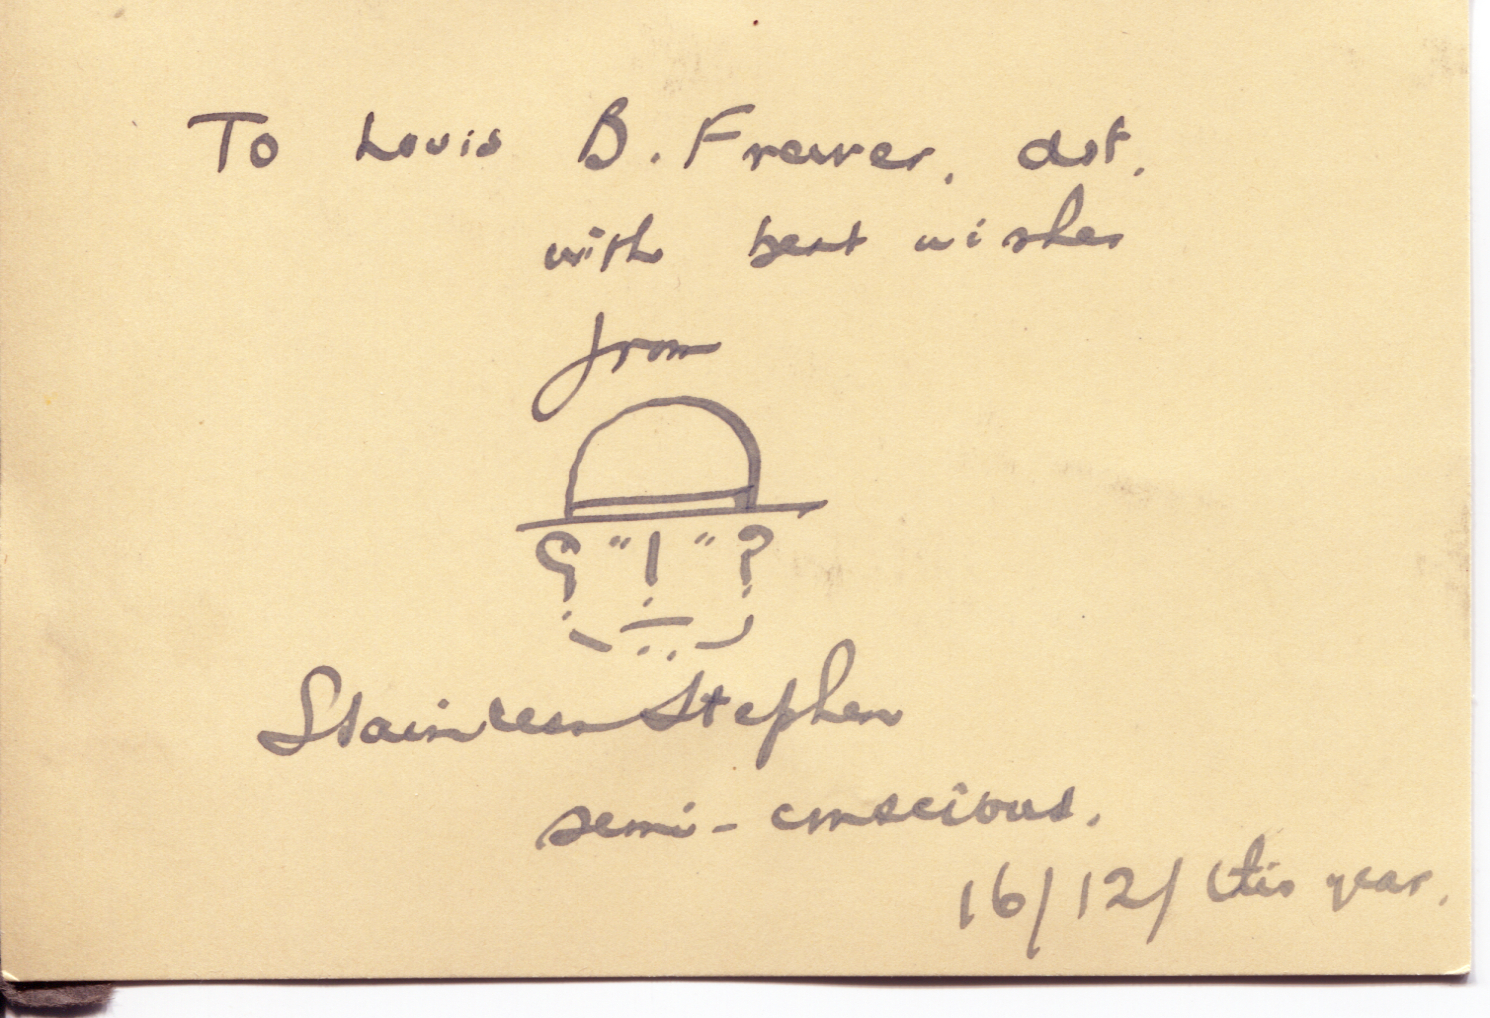 To Louis B. Frewer. dot.
with best wishes
from
Stainless Stephen
semi-conscious.
16/12/this year.